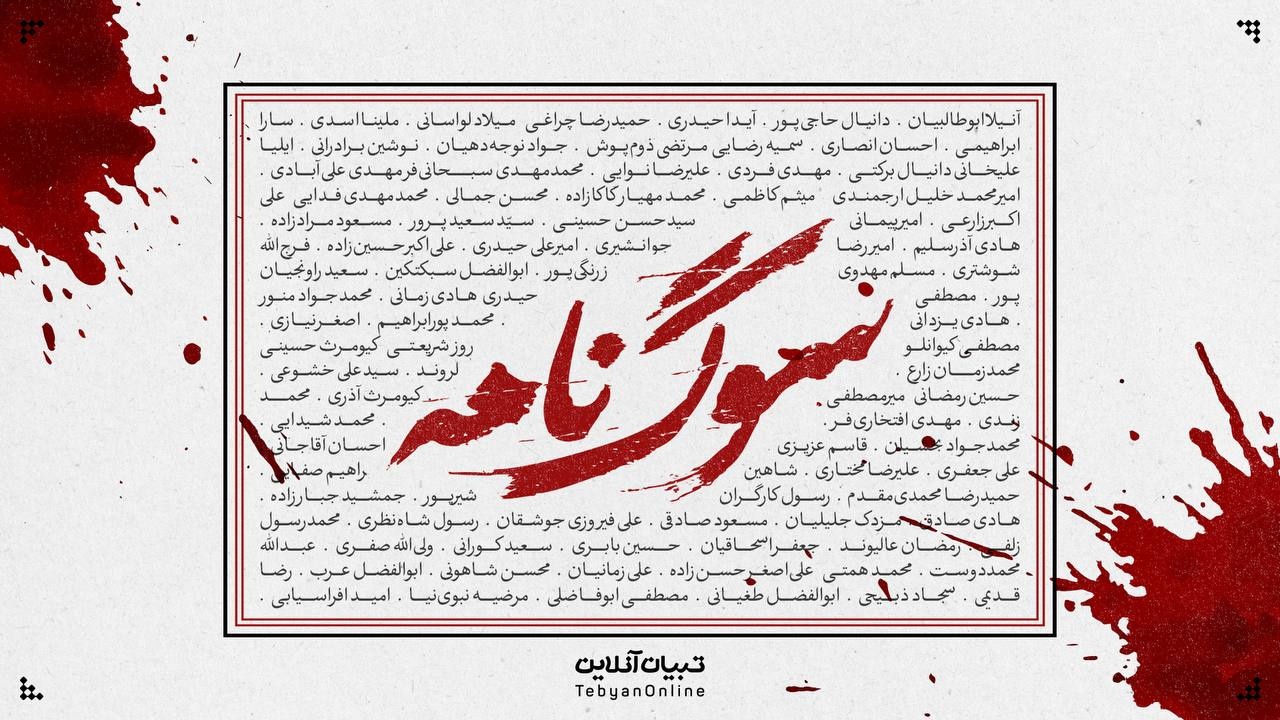 آنیلا ابوطالبیان . دانیال حاجی‌پور . آیدا حیدری . حمیدرضا چراغی میلاد لواسانی . ملینا اسدی . سارا
ابراهیمی . احسان انصاری . سمیه رضایی مرتضی ذوم‌پوش . جواد نوجه‌دهیان . نوشین برادرانی . ایلیا
علیخانی دانیال برکتی . مهدی فردی . علیرضا نوایی . محمدمهدی سبحانی‌فر مهدی علی‌آبادی .
امیرمحمد خلیل ارجمندی میثم کاظمی . محمد مهیار کاکازاده . محسن جمالی . محمدمهدی فدایی علی
اکبرزارعی . امیرپیمانی سیدحسن حسینی . سیّد سعیدپرور . مسعود مرادزاده .
هادی آذرسلیم . امیررضا جوانشیری . امیرعلی حیدری . علی‌اکبر حسین‌زاده . فرج‌الله
شوشتری . مسلم مهدوی زرنگی‌پور . ابوالفضل سبکتکین . سعید راونجیان
پور . مصطفی حیدری هادی زمانی . محمدجواد منور
. هادی یزدانی محمد پورابراهیم . اصغرنیازی .
مصطفی کیوانلو روز شریعتی کیومرث حسینی
محمدزمان زارع . لروند . سیدعلی خشوعی .
حسین رمضانی میرمصطفی کیومرث آذری . محمد
نقدی . مهدی افتخاری‌فر . محمد شیدایی .
محمدجواد بخشیان . قاسم عزیزی احسان آقاجانی
علی جعفری . علیرضا مختاری . شاهین راهیم صفایی .
حمیدرضا محمدی‌مقدم . رسول کارگران شیرپور . جمشید جبارزاده .
هادی صادق . مزدک جلیلیان . مسعود صادقی . علی فیروزی جوشقان . رسول شاه‌نظری . محمدرسول
زلفی . رمضان عالیوند . جعفر اسحاقیان . حسین بابری . سعید کورانی . ولی‌الله صفری . عبدالله
محمددوست . محمد همتی علی‌اصغر حسن‌زاده . علی زمانیان . محسن شاهونی . ابوالفضل عرب . رضا
قدیمی . سجاد ذبیحی . ابوالفضل طغیانی . مصطفی ابوفاضلی . مرضیه نبوی‌نیا . امید افراسیابی .
سوگ‌نامه
تبیان آنلاین
TebyanOnline